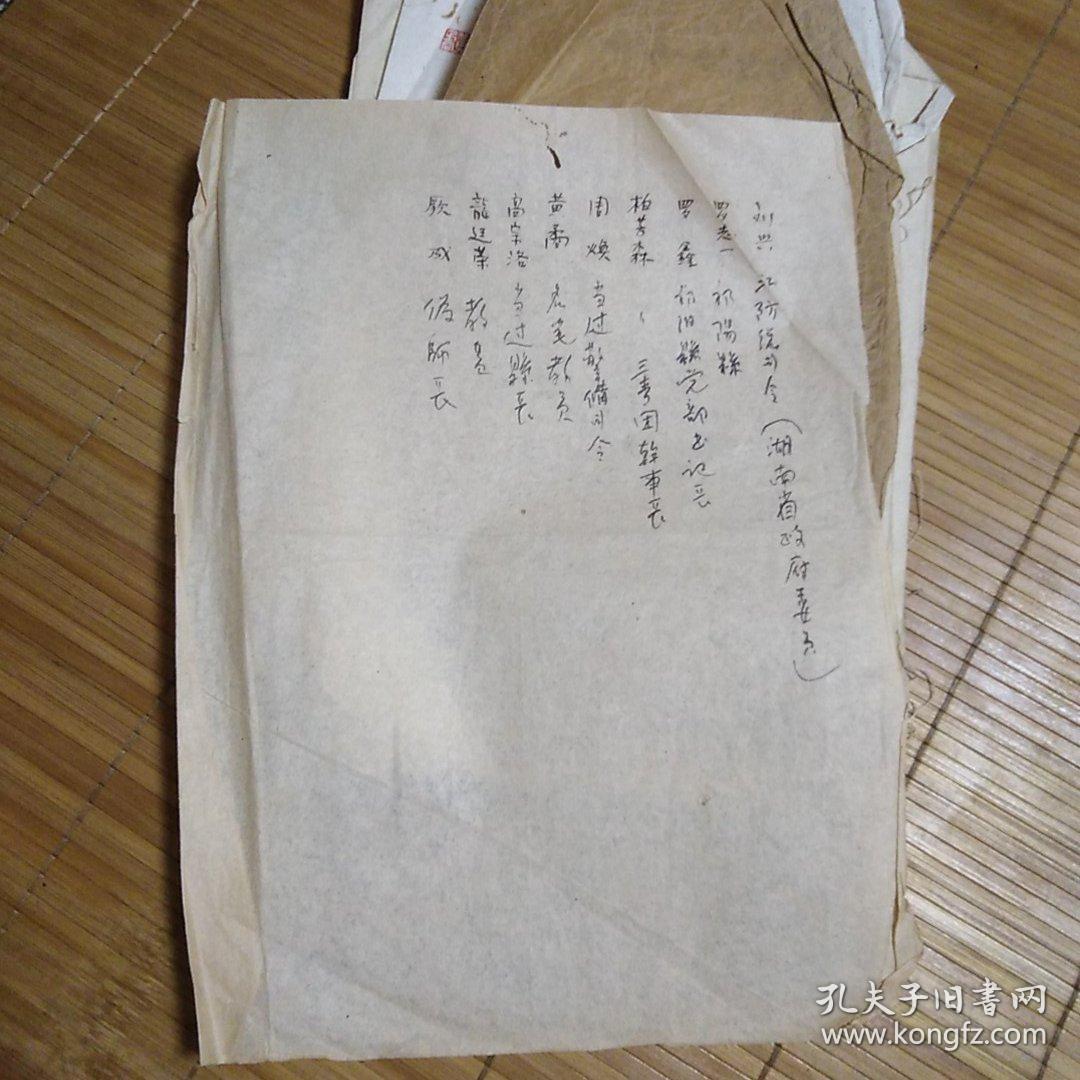 刘兴 江防总司令（湖南省政府委员）
罗志一 祁陽縣
罗鑫 祁阳縣党部书记长
柏芳森 〃 三青团幹事长
周焕 当过警備司令
黄 教员
高宗洛 当过縣长
龍廷荣 教员
欧成 师长
孔夫子旧书网
www.kongfz.com